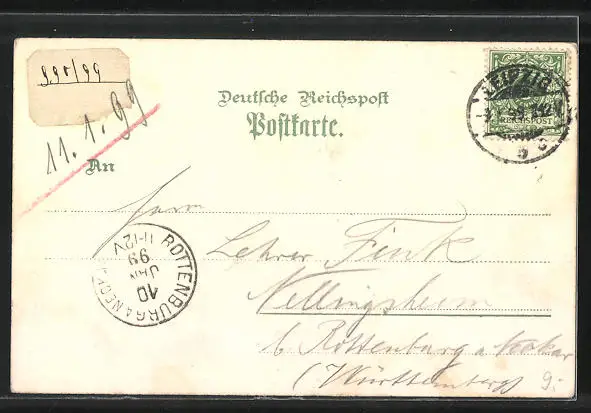 990/99
11.1.99
Deutsche Reichspost
Postkarte.
An
LEIPZIG
REICHSPOST
Herrn
Lehrer Fink
Nellingsheim
b/ Rottenburg a Neckar
(Württemberg)
9.-
ROTTENBURG A NECKAR
10
JAN
99
11-12V